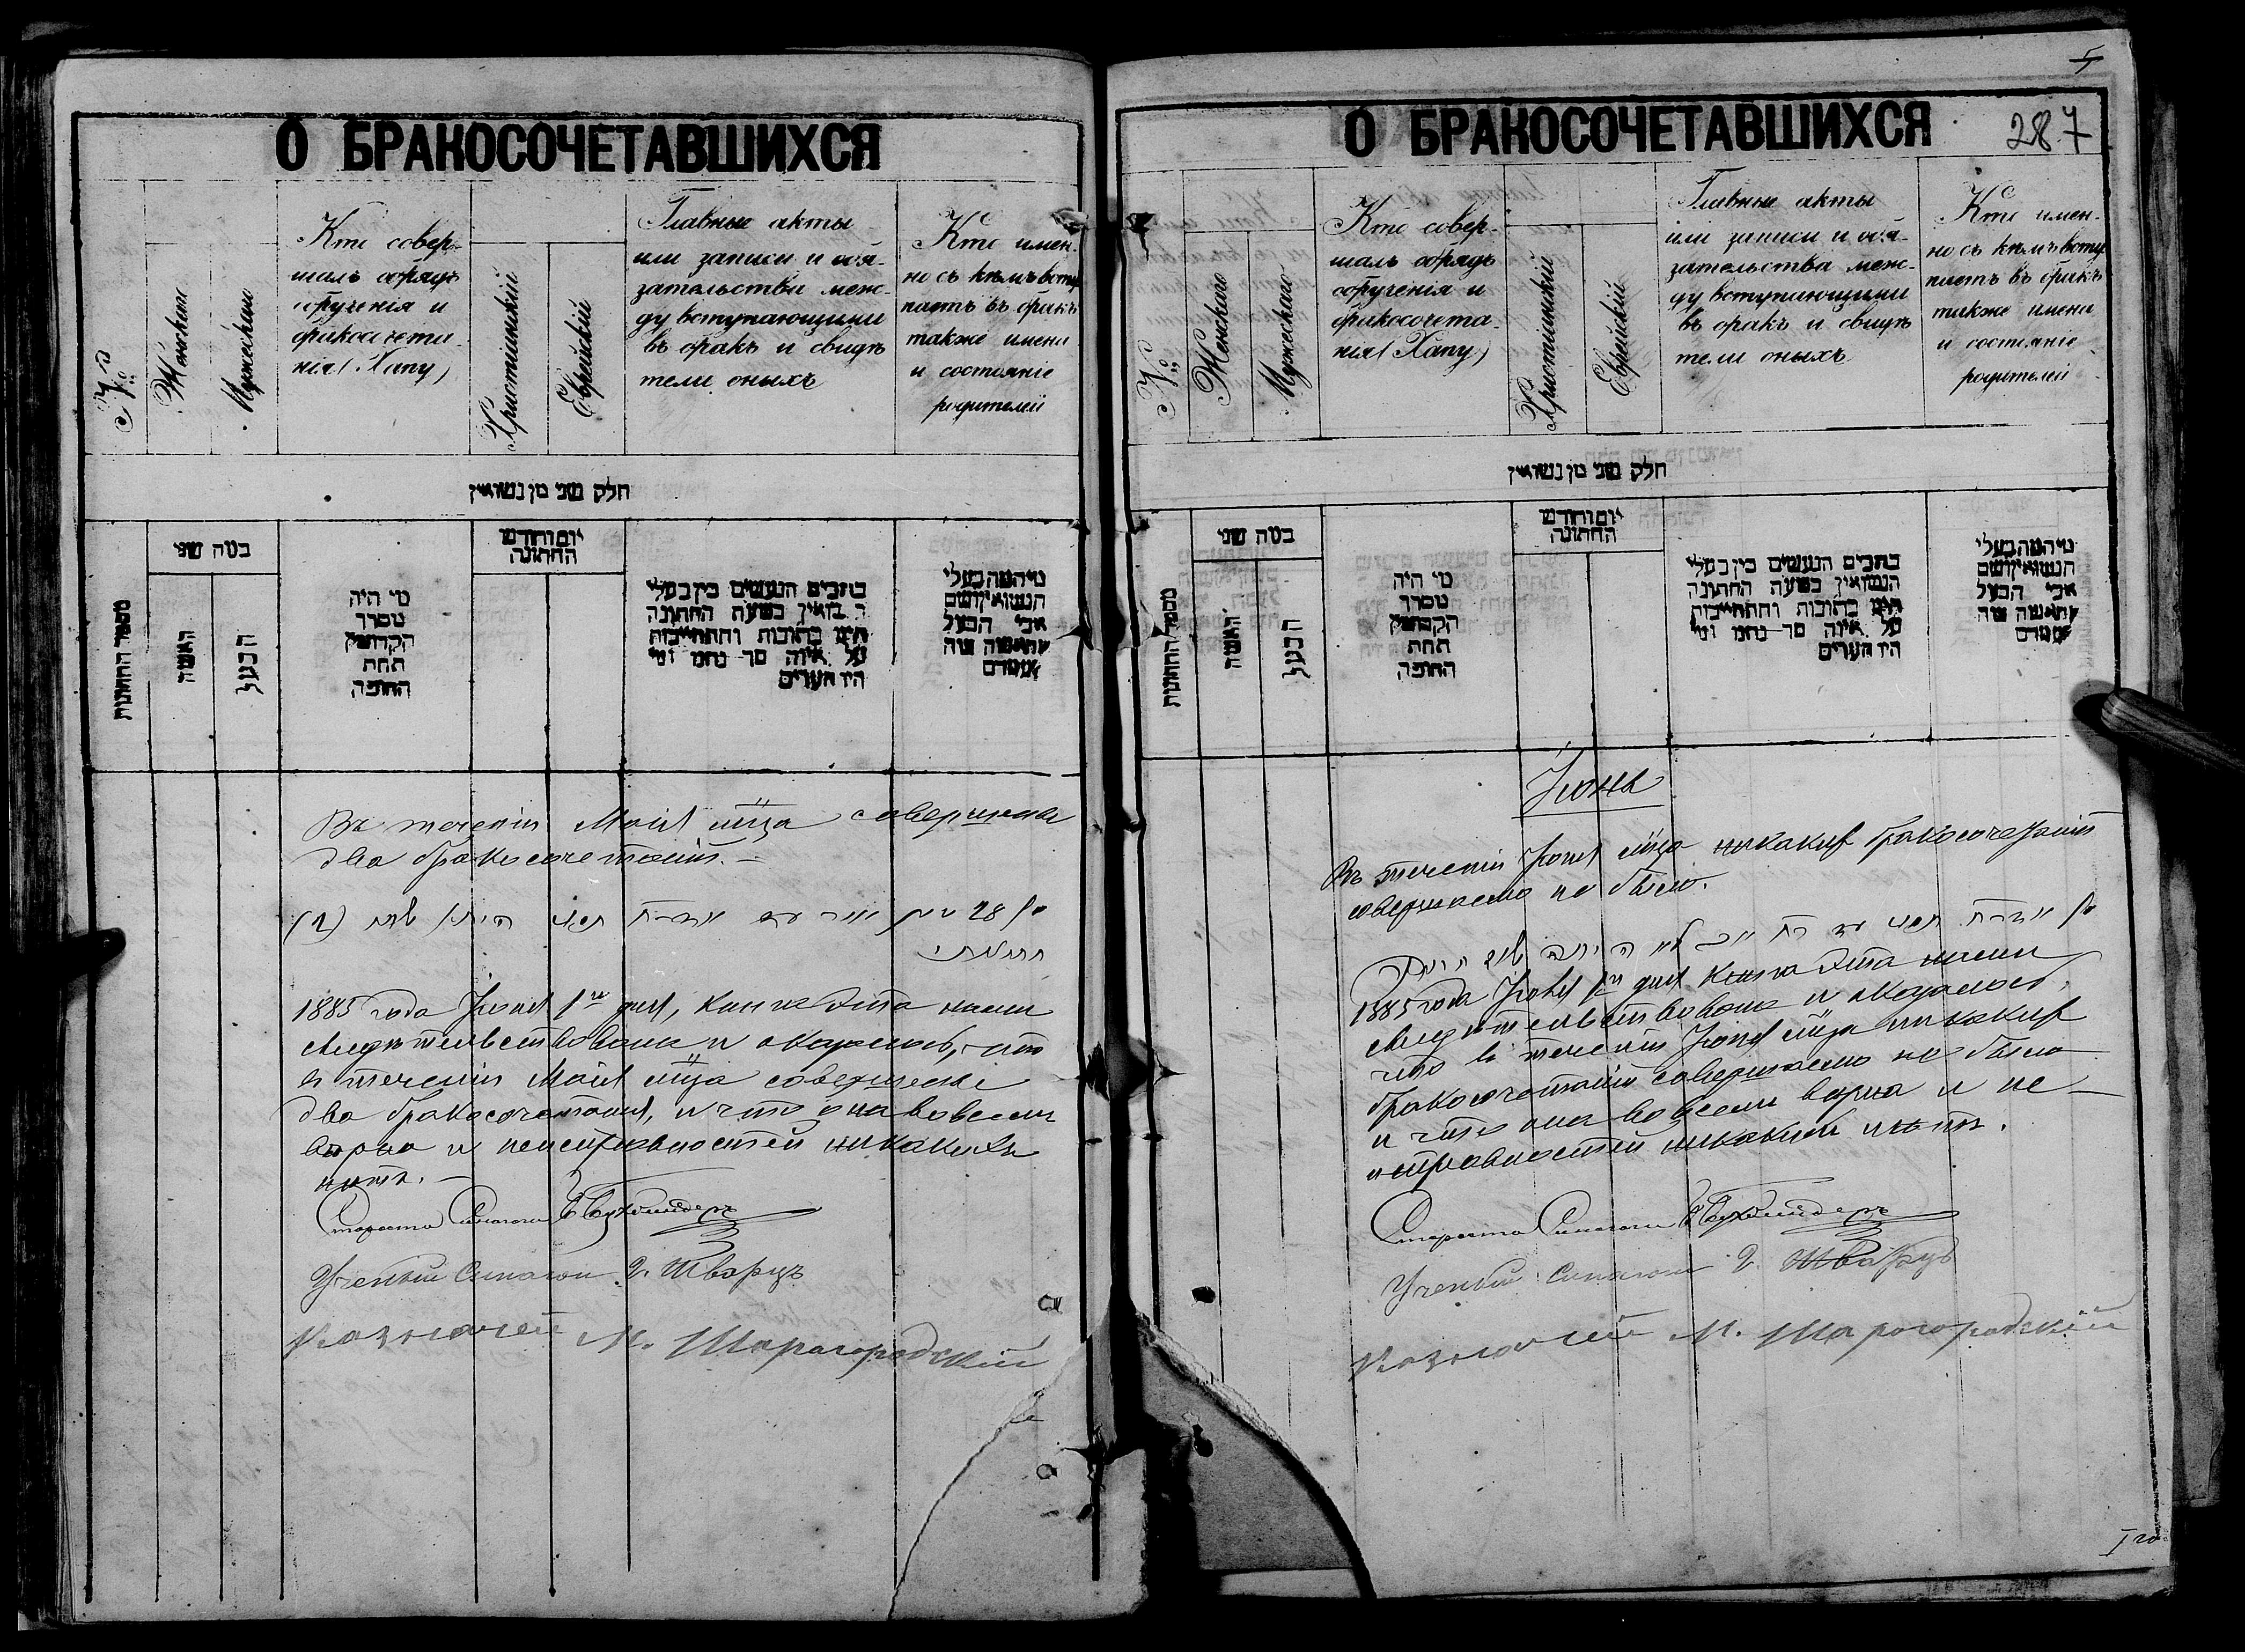 О БРАКОСОЧЕТАВШИХСЯ
№
Женскаго
Мужескаго
Кто совер-
шалъ обрядъ
обрученія и
бракосочета-
нія (Хапу)
Христіянскій
Еврейскій
Главные акты
или записи и обя-
зательства меж-
ду вступающими
въ бракъ и свидѣ
тели оныхъ
Кто имен-
но съ кѣмъ вступ
паетъ въ бракъ
также имена
и состояніе
родителей
חלק שני מן נשואין
מספר החתונות
במה שני
האשה
הבעל
מי היה
מסדר
הקדושין
תחת
החופה
יום וחודש
החתונה
בתבים הנעשים בין בעלי
בשעת החתונה
היו כתובות והתחייבות
על איזה סך נחמו ומי
היו העדים
מי המה בעלי
הנשואין ושם
אבי הבעל
והאשה
Въ теченіи Маія м-ца совершены
два бракосочетанія. —
1885 года Іюня 1го дня, книга эта нами
свидѣтельствована и оказалось, что
въ теченіи Маія м-ца совершены
два бракосочетанія, и что она во всемъ
вѣрна и неисправностей никакихъ
нѣтъ. —
Староста Синагоги Бухбиндеръ
Ученый Синагоги Шварцъ
Казначей М. Шарогородскій
О БРАКОСОЧЕТАВШИХСЯ
287
5
№
Женскаго
Мужескаго
Кто совер-
шалъ обрядъ
обрученія и
бракосочета-
нія (Хапу)
Христіянскій
Еврейскій
Главные акты
или записи и обя-
зательства меж-
ду вступающими
въ бракъ и свидѣ
тели оныхъ
Кто имен-
но съ кѣмъ вступ
паетъ въ бракъ
также имена
и состояніе
родителей
חלק שני מן נשואין
מספר החתונות
במה שני
האשה
הבעל
מי היה
מסדר
הקדושין
תחת
החופה
יום וחודש
החתונה
בתבים הנעשים בין בעלי
הנשואין בשעת החתונה
היו כתובות והתחייבות
על איזה סך נחמו ומי
היו העדים
מי המה בעלי
הנשואין ושם
אבי הבעל
והאשה
Іюнь
Въ теченіи Іюня м-ца никакихъ бракосочетаній
совершаемо не было.
1885 года Іюля 1го дня книга эта нами
свидѣтельствована и оказалось,
что въ теченіи Іюня м-ца никакихъ
бракосочетаній совершаемо не было
и что она во всемъ вѣрна и не —
исправностей никакихъ нѣтъ.
Староста Синагоги Бухбиндеръ
Ученый Синагоги Шварцъ
Казначей М. Шарогородскій